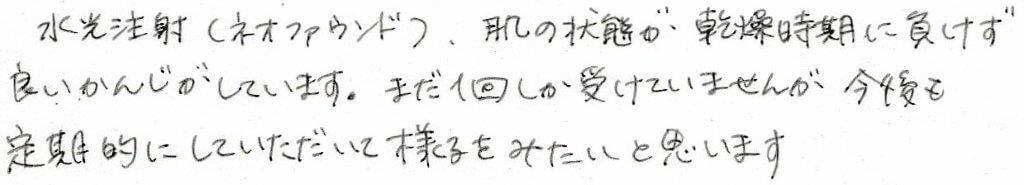 水光注射（ネオファウンド）、肌の状態が乾燥時期に負けず
良いかんじがしています。まだ1回しか受けていませんが、今後も
定期的にしていただいて様子をみたいと思います